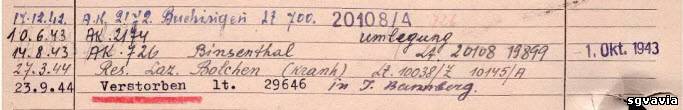 17.12.42. A.K. 2172. Buchingen Lt 700. 20108/A
10.6.43 AK. 2174 Umlegung
14.8.43 AK. 726 Binsenthal Lt. 20108 19899 1. Okt. 1943
27.3.44 Res. Laz. Bolchen (krank) Lt. 10038/Z 10145/A
23.9.44 Verstorben lt. 29646 in
sgvavia